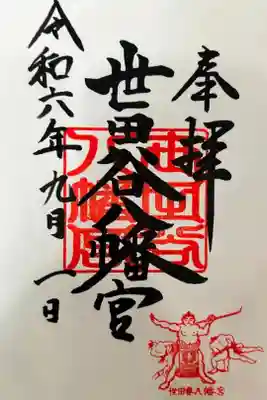 奉拝
世田谷八幡宮
令和六年九月一日
世田谷八幡宮